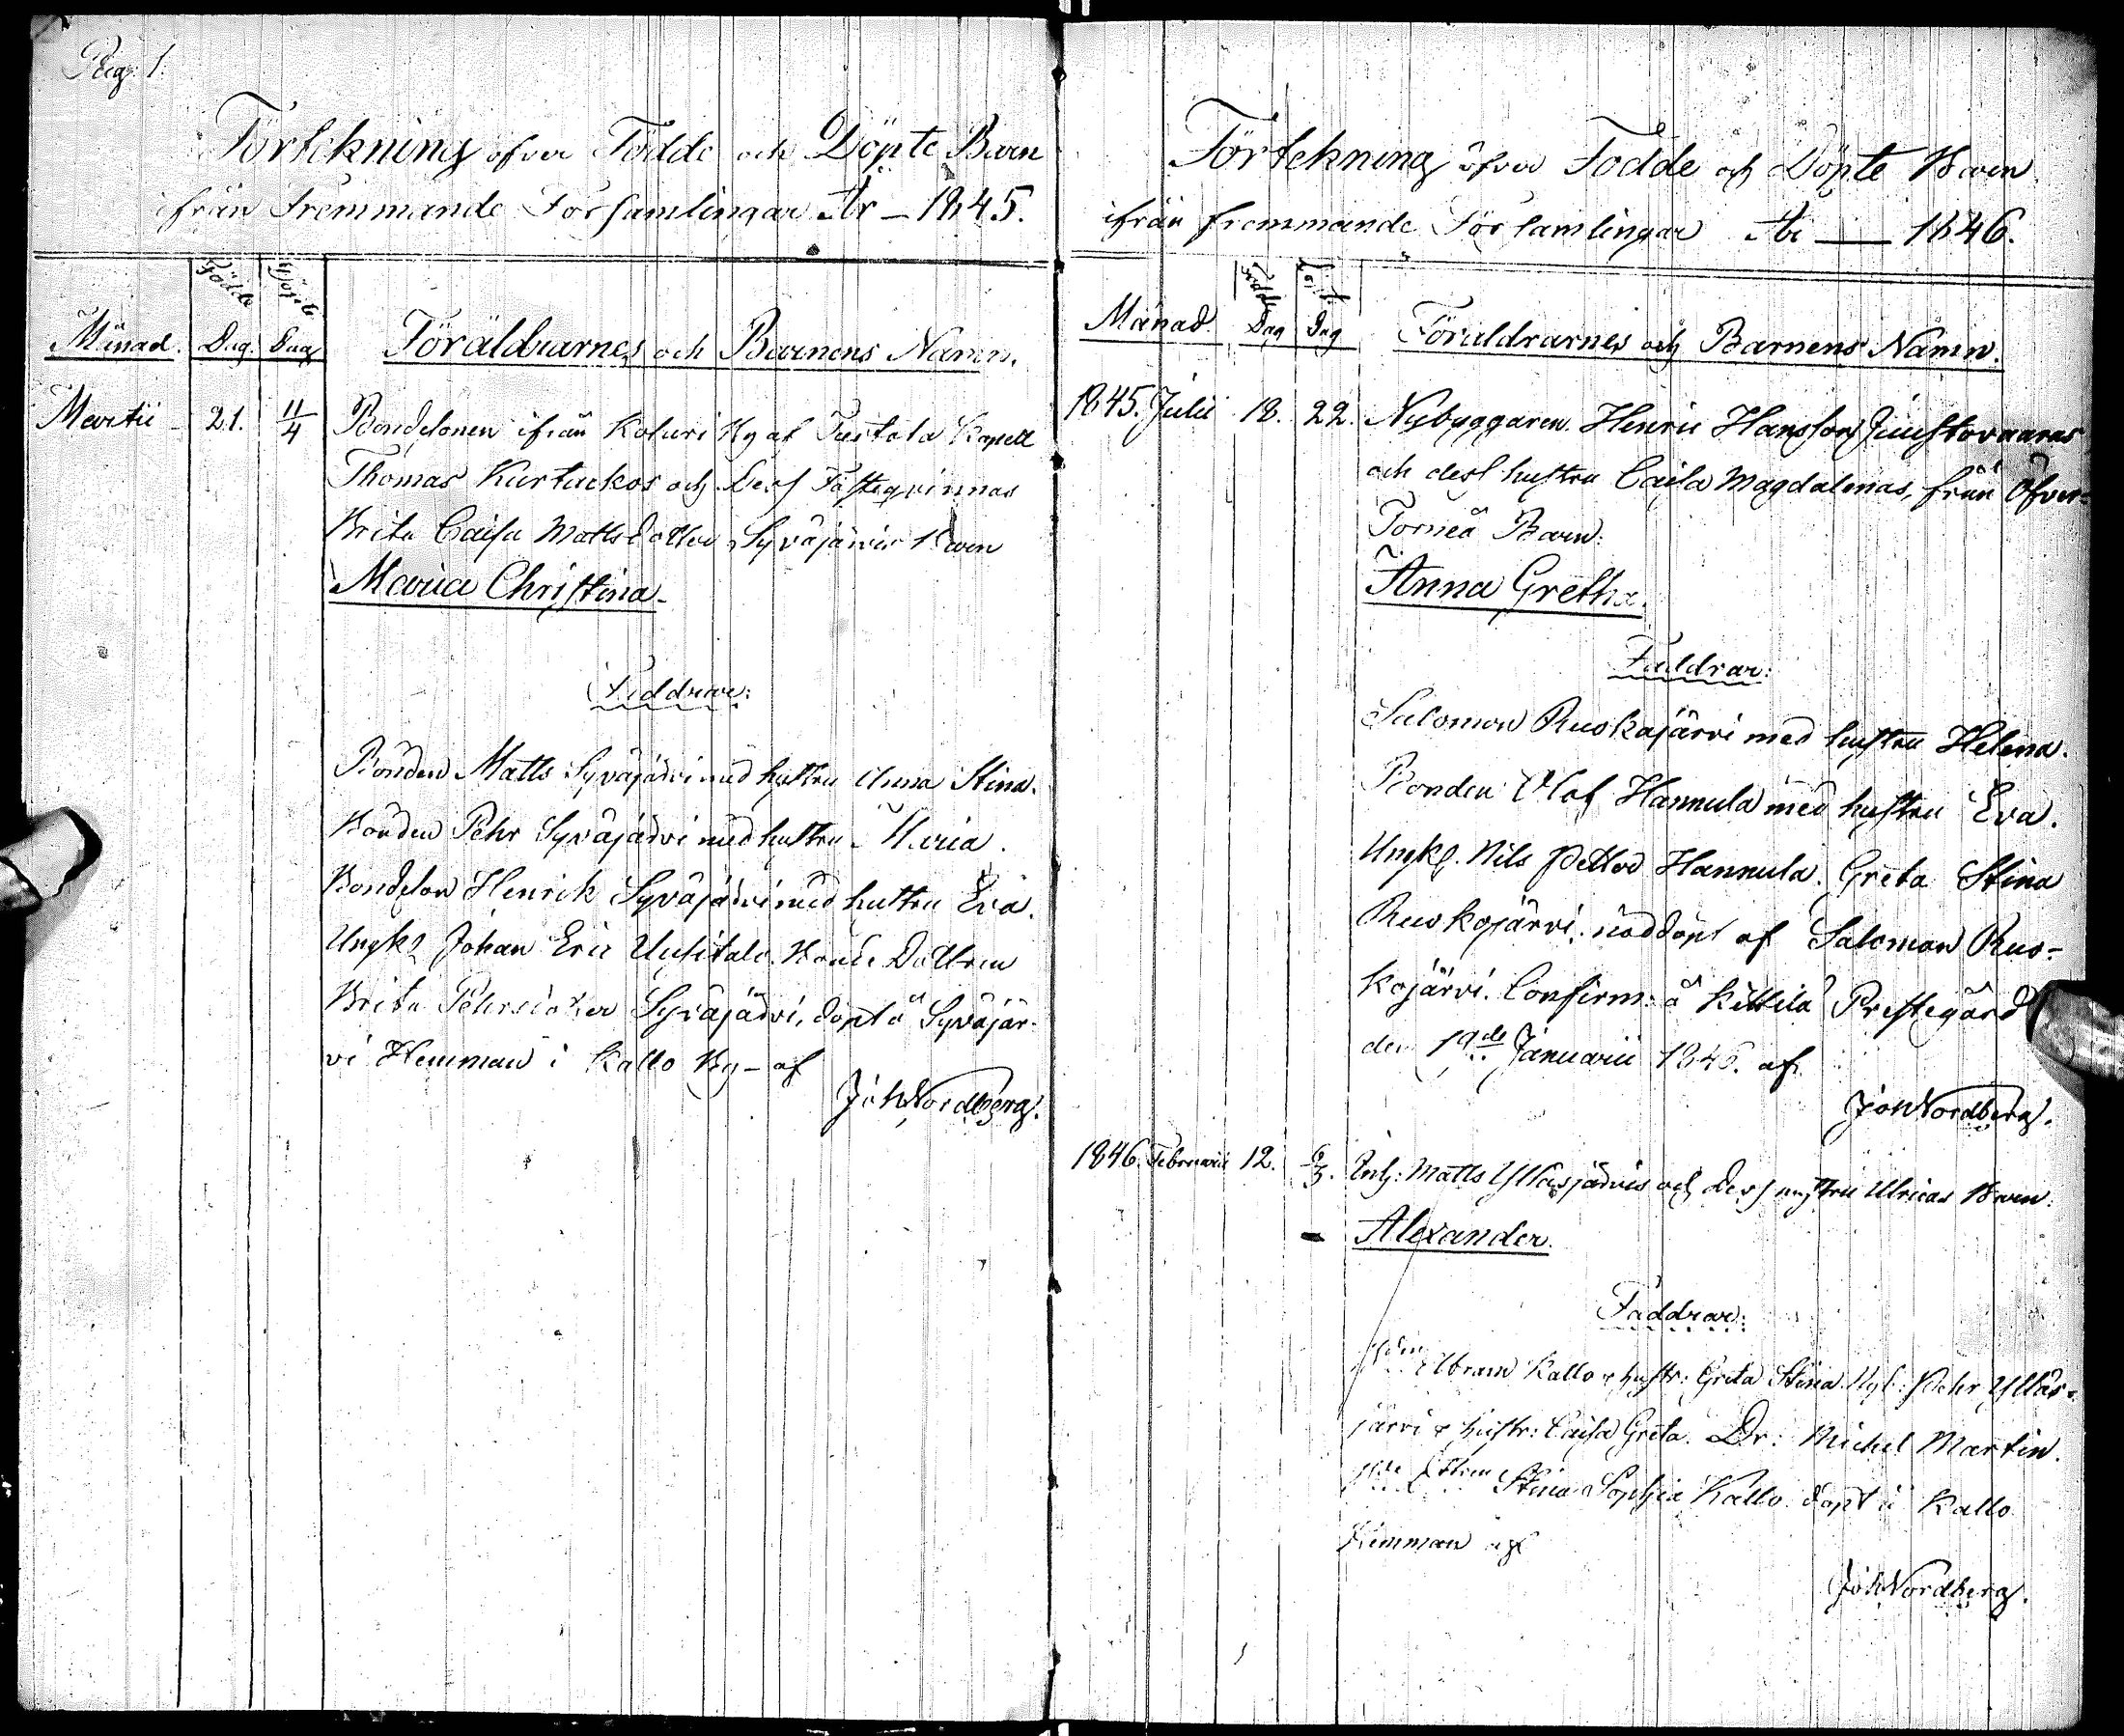 Pag. 1.
Förtekning öfver Födde och Döpte Barn
ifrån Fremmande Församlingar År – 1845.
Månad. Födde Dag. Döpte Dag Föräldrarnes och Barnens Namn.
Martii 21. 11/4 Bondsonen ifrån Kolari By af Turtola Kapell
Thomas Kurtackos och Dess Fästeqvinnas
Brita Caisa Mattsdotter Syväjärvis Barn
Maria Christina
Faddrar:
Bonden Matts Syväjärvi med hustru Anna Stina.
Bonden Pehr Syväjärvi med hustru Maria.
Bondeson Henrik Syväjärvi med hustru Eva.
Ungk. Johan Eric Uusitalo. Bonde Dottren
Brita Pehrsdotter Syväjärvi, döpt å Syväjär-
vi Hemman i Kallo By – af
Joh Nordberg.
Förtekning öfver Födde och Döpte Barn
ifrån fremmande Församlingar År — 1846.
Månad. Födde Dag Dag Föräldrarnes och Barnens Namn.
1845. Julii 18. 22. Nybyggaren Henric Hansson Juustovaaras
och dess hustru Caisa Magdalenas, från Öfver-
Torneå Barn:
Anna Gretha.
Faddrar:
Salomon Ruokajärvi med hustru Helena.
Bonden Olof Hannula med hustru Eva.
Ungk. Nils Petter Hannula. Greta Stina
Ruokojärvi. nöddöpt af Salomon Ruo-
kojärvi. Confirm: å Kittilä Prestegård
den 19de Januarii 1846. af
Joh Nordberg.
1846. Februarii 12. 6/3. Inh: Matts Ylläsjärvis och Dess hustru Ulricas Barn.
Alexander.
Faddrar:
Abram Kallo & hustr: Greta Stina. Nyb: Pehr Ylläs-
järvi & hustr: Caisa Greta. Dr: Michel Martin.
Stina Sophia Kallo. döpt å Kallo
Hemman af
Joh Nordberg.